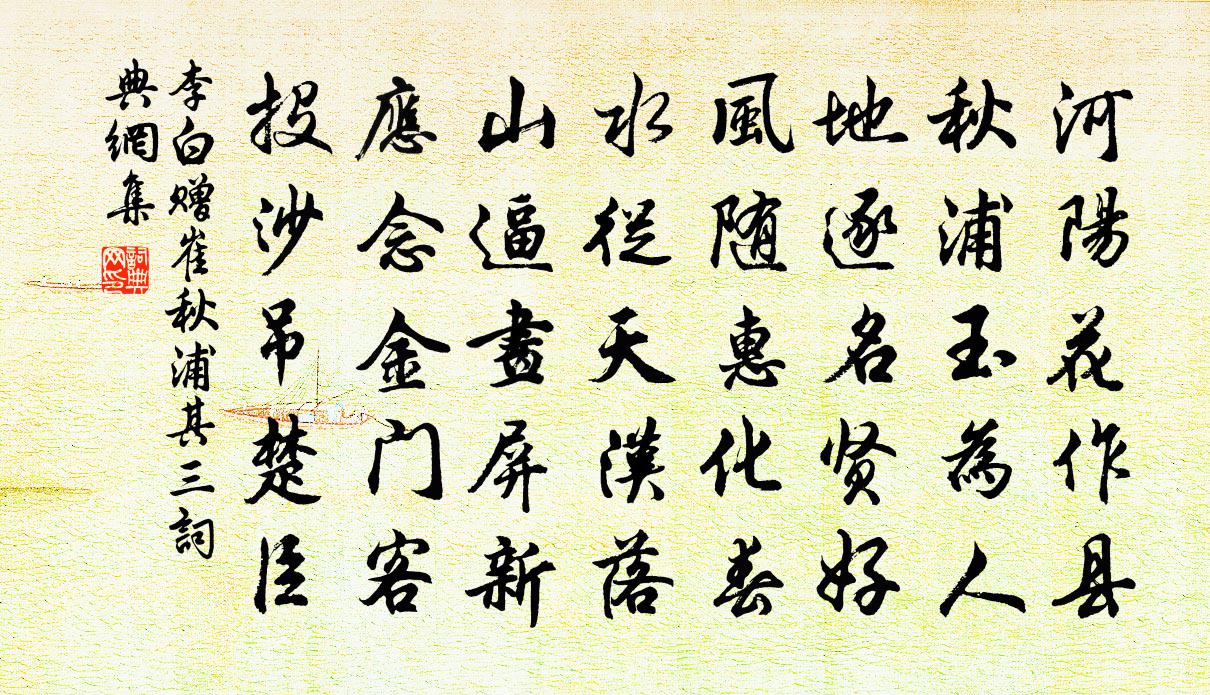 河陽花作县
秋浦玉為人
地逐名贤好
風随惠化春
水從天漢落
山逼畫屏新
應念金门客
投沙吊楚臣
李白赠崔秋浦其三詞
典網集
詞典
网印